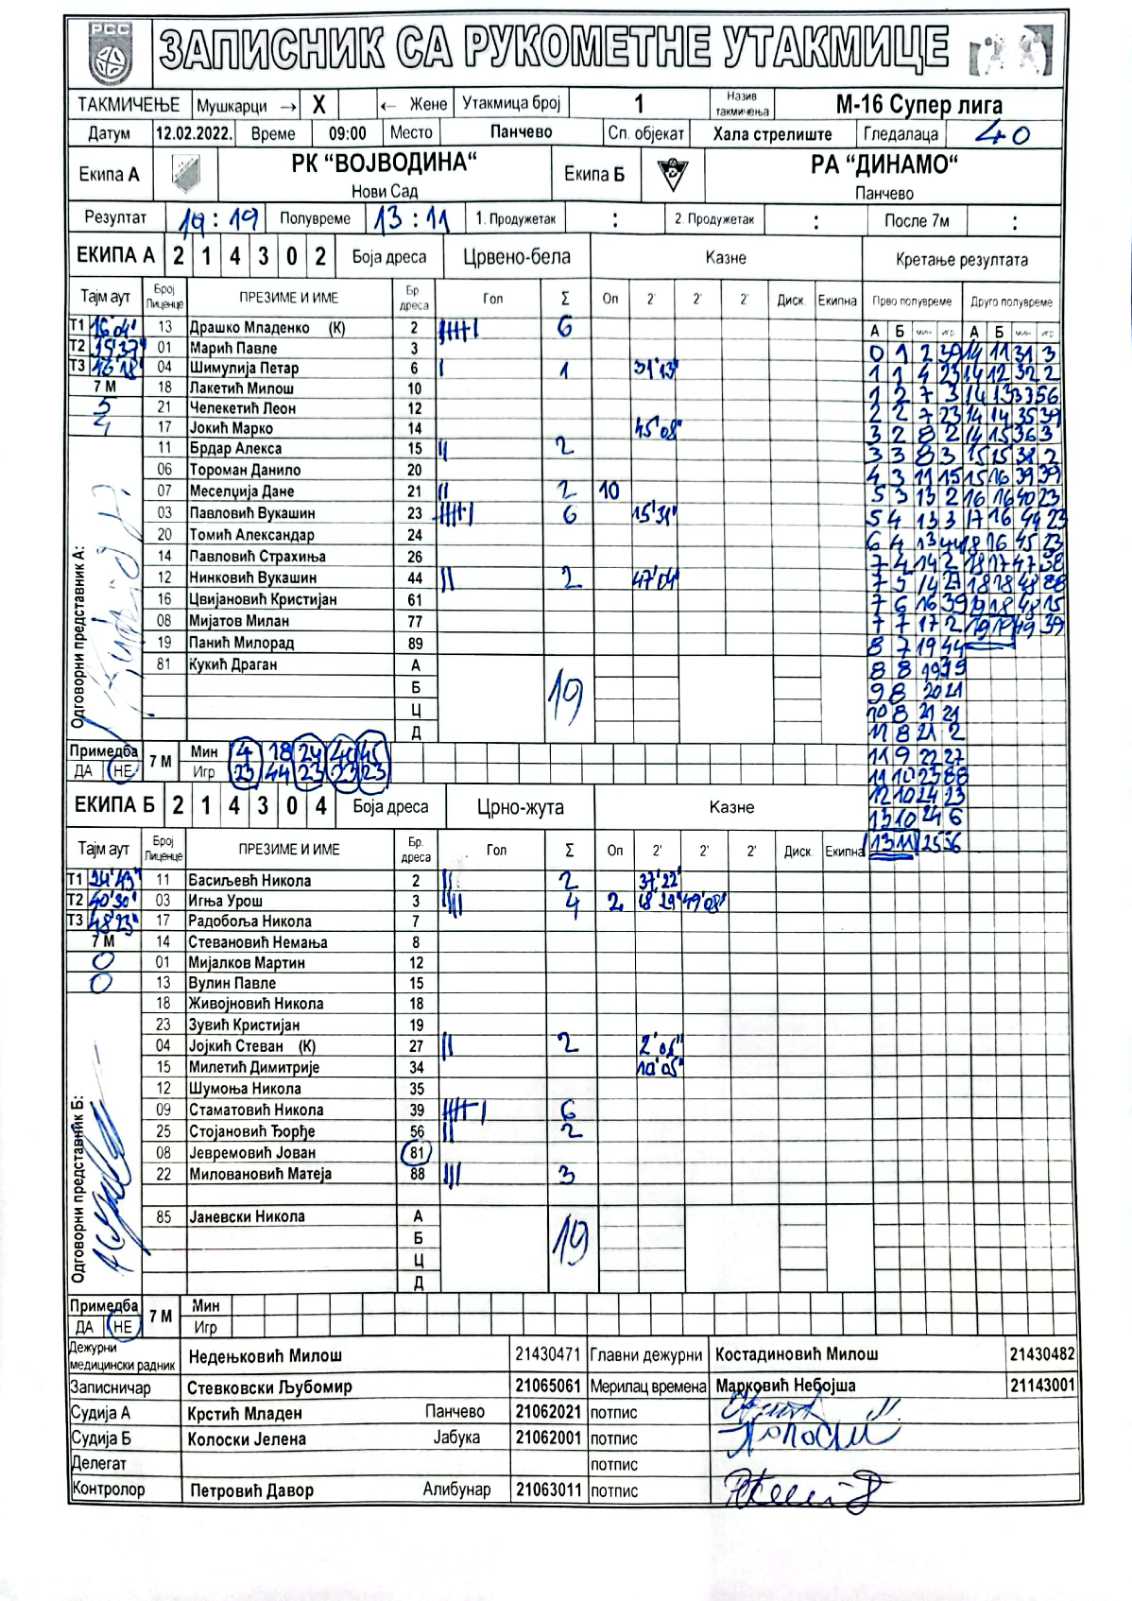 РСС
ЗАПИСНИК СА РУКОМЕТНЕ УТАКМИЦЕ
ТАКМИЧЕЊЕ Мушкарци → X ← Жене Утакмица број 1 Назив такмичења М-16 Супер лига
Датум 12.02.2022. Време 09:00 Место Панчево Сп. објекат Хала стрелиште Гледалаца 40
Екипа А РК “ВОЈВОДИНА“ Нови Сад Екипа Б РА “ДИНАМО“ Панчево
Резултат 19 : 19 Полувреме 13 : 11 1. Продужетак : 2. Продужетак : После 7м :
ЕКИПА А 2 1 4 3 0 2 Боја дреса Црвено-бела Казне Кретање резултата
Тајм аут Број Лиценце ПРЕЗИМЕ И ИМЕ Бр дреса Гол Σ Оп 2' 2' 2' Диск. Екипна Прво полувреме Друго полувреме
А Б мин игр А Б мин игр
Т1 16'04" 13 Драшко Младенко (К) 2 6
Т2 01 Марић Павле 3
Т3 46'18" 04 Шимулија Петар 6 1 31'13"
7 М 18 Лакетић Милош 10
5 21 Челекетић Леон 12
4 17 Јокић Марко 14 45'08"
11 Брдар Алекса 15 2
06 Тороман Данило 20
07 Меселџија Дане 21 2 10
03 Павловић Вукашин 23 6 15'31"
20 Томић Александар 24
14 Павловић Страхиња 26
12 Нинковић Вукашин 44 2 47'04"
16 Цвијановић Кристијан 61
08 Мијатов Милан 77
19 Панић Милорад 89
81 Кукић Драган А
Б
Ц
Д
19
Одговорни представник А:
0 1 2 39 14 11 31 3
1 1 4 23 14 12 32 2
1 2 7 3 14 13 33 56
2 2 7 23 14 14 35 39
3 2 8 2 14 15 36 3
3 3 8 3 15 15 38 2
4 3 11 15 15 16 39 39
5 3 13 2 16 16 40 23
5 4 13 3 17 16 44 23
6 4 13 44 18 16 45 23
7 4 14 2 18 17 47 38
7 5 14 27 18 18 48 88
7 6 16 39 19 18 48 15
7 7 17 2 19 19 49 39
8 7 19 44
8 8 19 39
9 8 20 21
10 8 21 21
11 8 21 2
11 9 22 27
11 10 23 88
12 10 24 23
13 10 24 6
13 11 25 56
Примедба ДА НЕ 7 М Мин 4 18 24 40 45
Игр 23 44 23 23 23
ЕКИПА Б 2 1 4 3 0 4 Боја дреса Црно-жута Казне
Тајм аут Број Лиценце ПРЕЗИМЕ И ИМЕ Бр. дреса Гол Σ Оп 2' 2' 2' Диск. Екипна
Т1 24'43" 11 Васиљевћ Никола 2 2 37'22"
Т2 40'30" 03 Игња Урош 3 4 2 18'29" 49'08"
Т3 48'23" 17 Радобоља Никола 7
7 М 14 Стевановић Немања 8
0 01 Мијалков Мартин 12
0 13 Вулин Павле 15
18 Живојновић Никола 18
23 Зувић Кристијан 19
04 Јојкић Стеван (К) 27 2
15 Милетић Димитрије 34 10'05"
12 Шумоња Никола 35
09 Стаматовић Никола 39 6
25 Стојановић Ђорђе 56 2
08 Јевремовић Јован 81
22 Миловановић Матеја 88 3
85 Јаневски Никола А
Б
Ц
Д
19
Одговорни представник Б:
Примедба ДА НЕ 7 М Мин
Игр
Дежурни медицински радник Недењковић Милош 21430471 Главни дежурни Костадиновић Милош 21430482
Записничар Стевковски Љубомир 21065061 Мерилац времена Марковић Небојша 21143001
Судија А Крстић Младен Панчево 21062021 потпис
Судија Б Колоски Јелена Јабука 21062001 потпис Колоски
Делегат потпис
Контролор Петровић Давор Алибунар 21063011 потпис